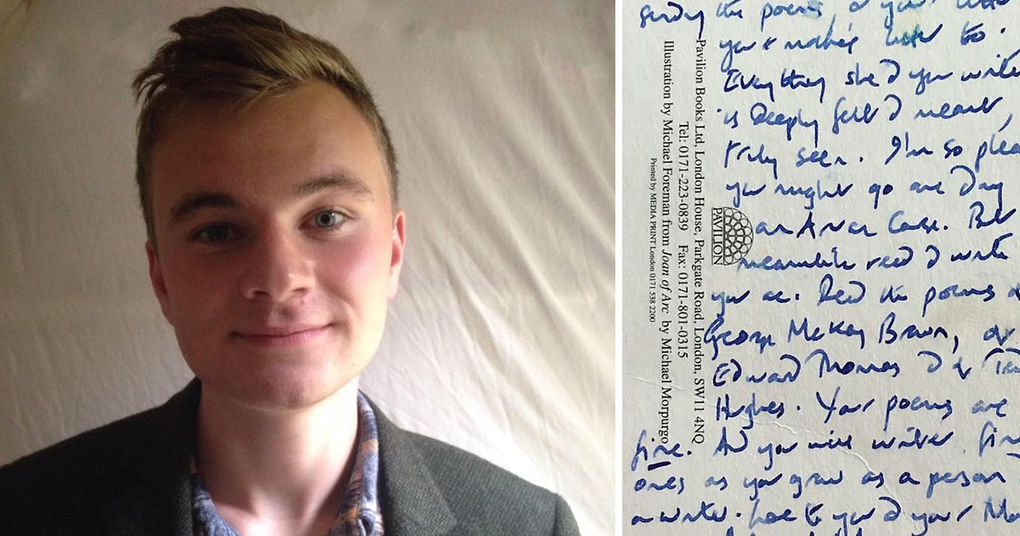 the poems, or your letter
you & make's letter to.
Everything she & you write
is deeply felt & meant,
truly seen. I'm so
you might go one day
an Arvon Course. But
meanwhile read & write
you are. Read the poems
George McKay Brown, or
Edward Thomas & of
Hughes. Your poems are
fine. And you will write
ones as you grow as a person
a writer. Love to you & your
Pavilion Books Ltd, London House, Parkgate Road, London, SW11 4NQ
Tel: 0171-223-0839 Fax: 0171-801-0315
Illustration by Michael Foreman from Joan of Arc by Michael Morpurgo
Printed by MEDIA PRINT London 0171 538 2200
PAVILION